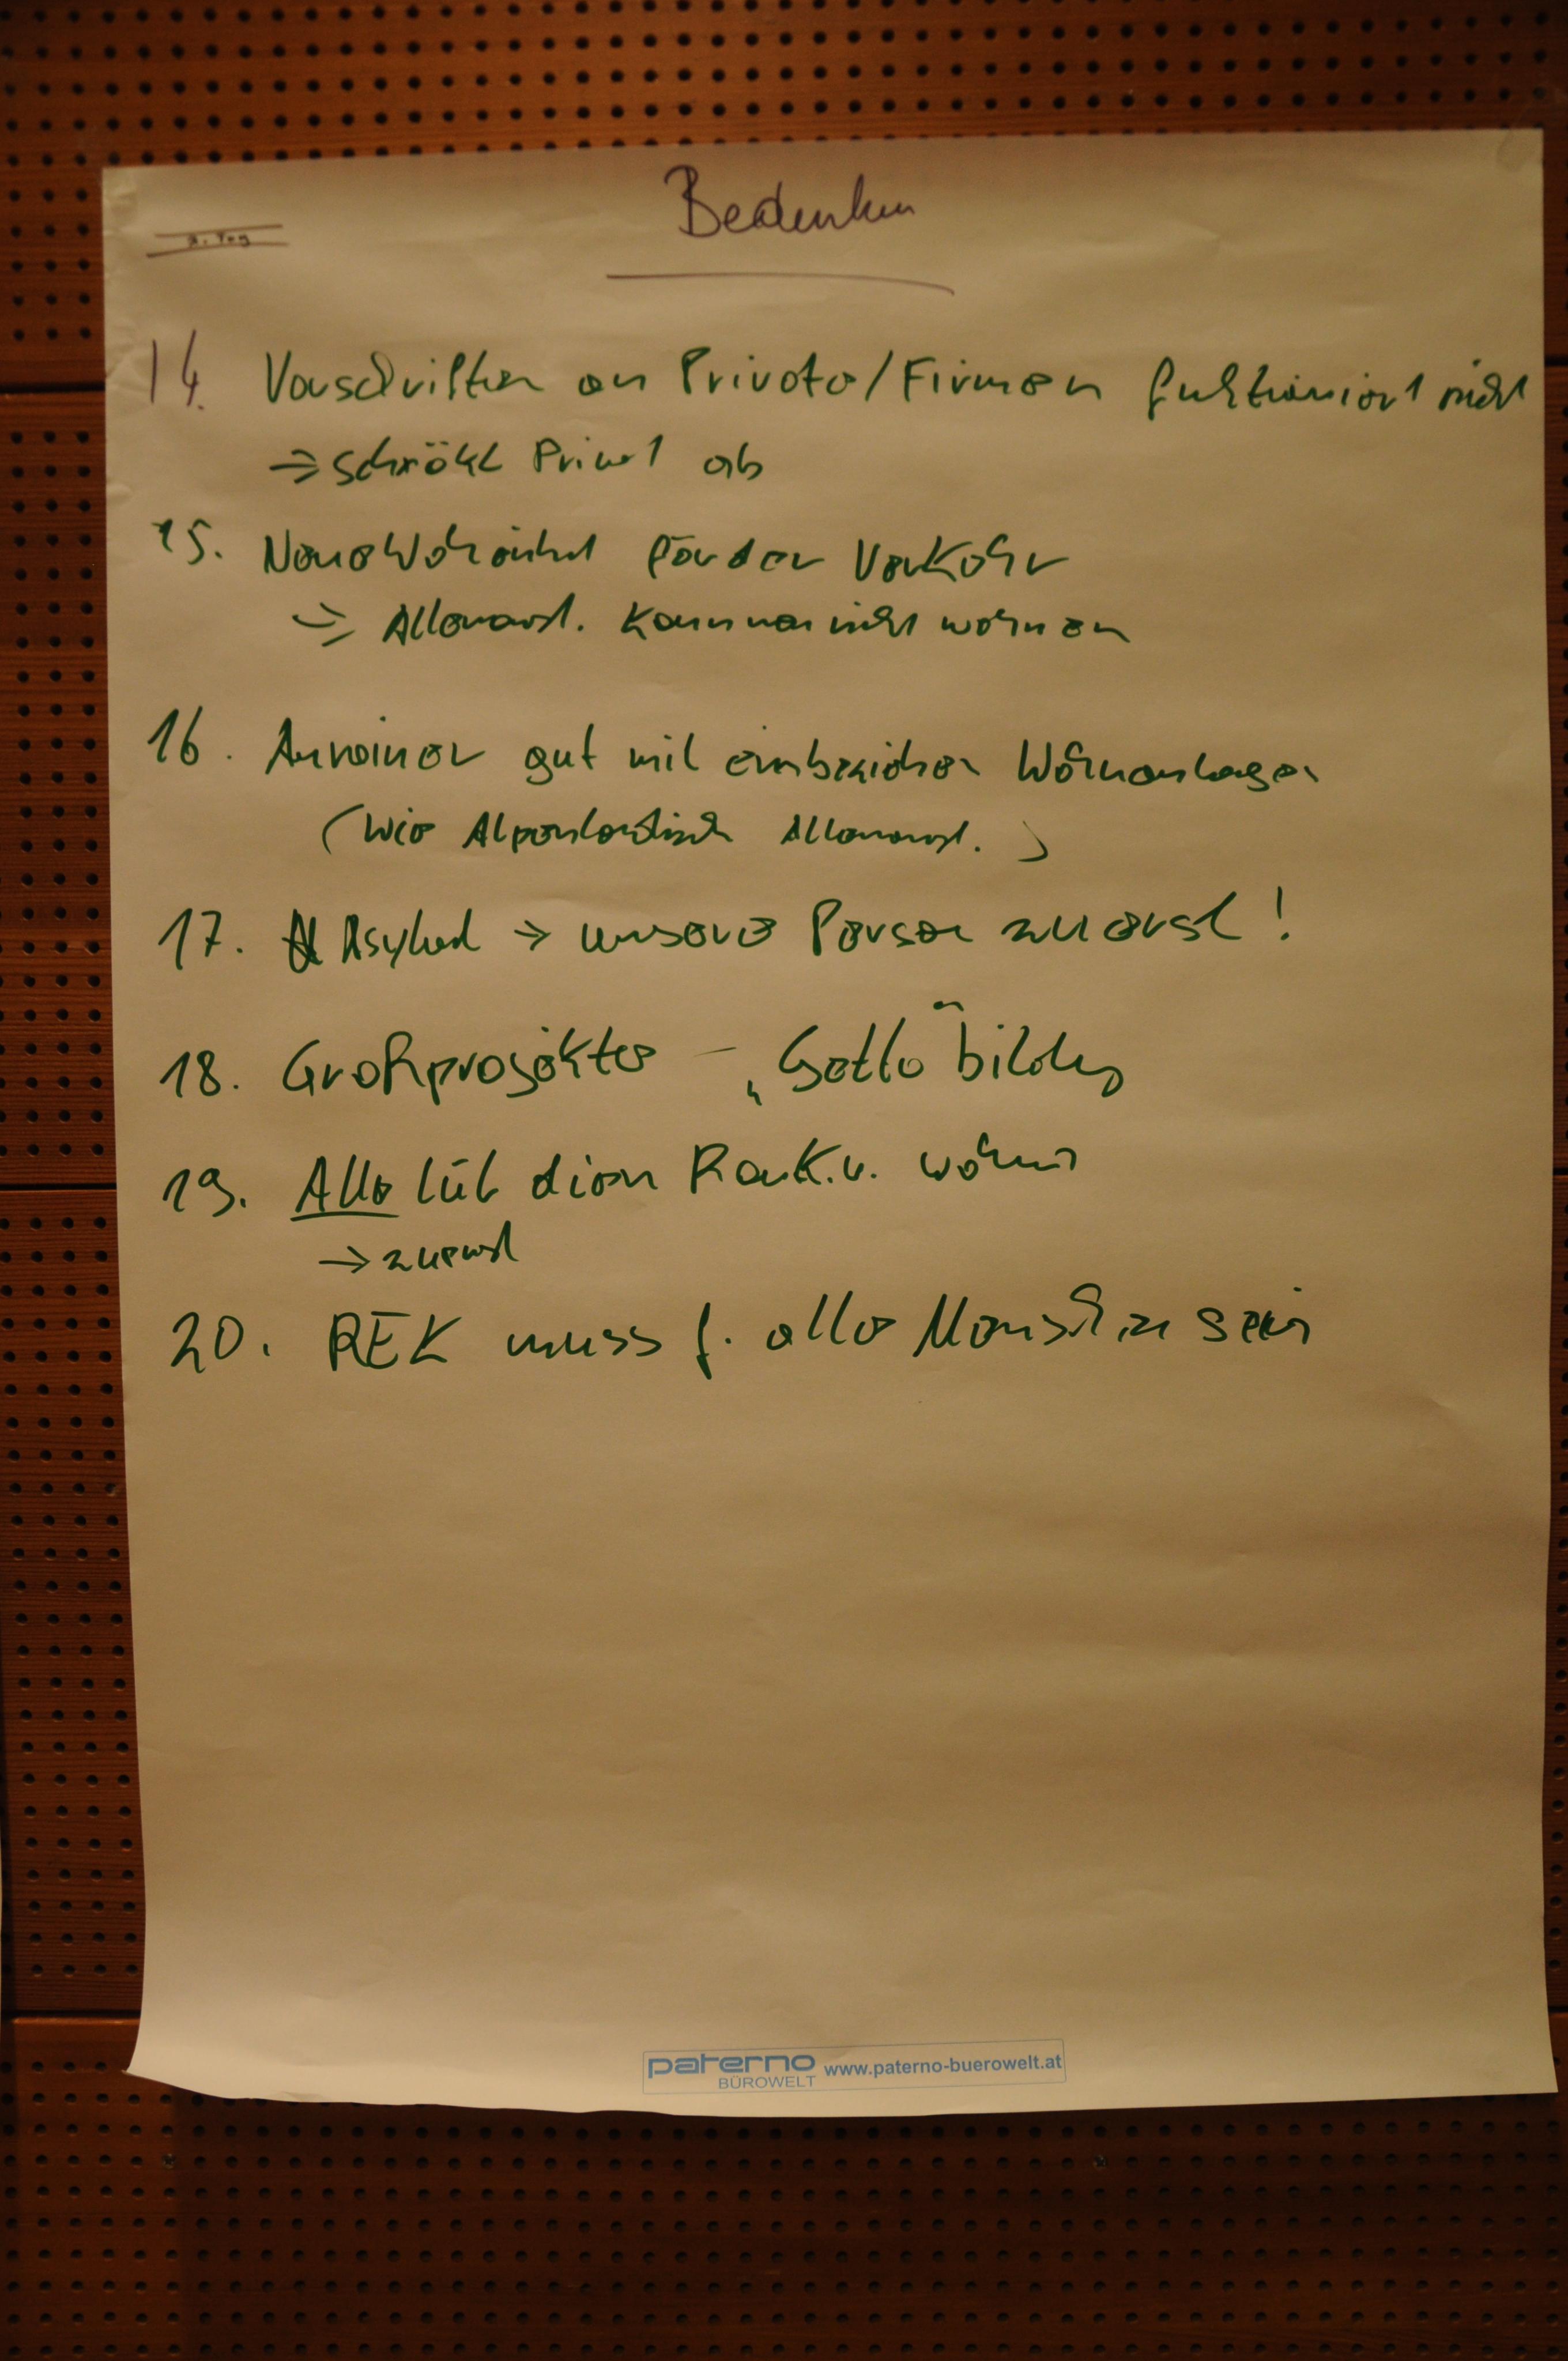 Bedenken
2. Tag
14. Vorschriften an Private/Firmen funktioniert nicht
⇒ schräkt Privat ab
15. Neue Wohneinheit fördern Verkehr
⇒ Altenarst. kann man nicht wohnen
16. Anrainer gut mit einbeziehen Wohnanlagen
(Wie Alpenländische Altenarst.)
17. Asylund → unsere Person zuerst!
18. Großprojekte – „Getto" bilden
19. Alle wohnen
→ zuerst
20. REK muss f. alle Menschen sein
paterno
BÜROWELT www.paterno-buerowelt.at